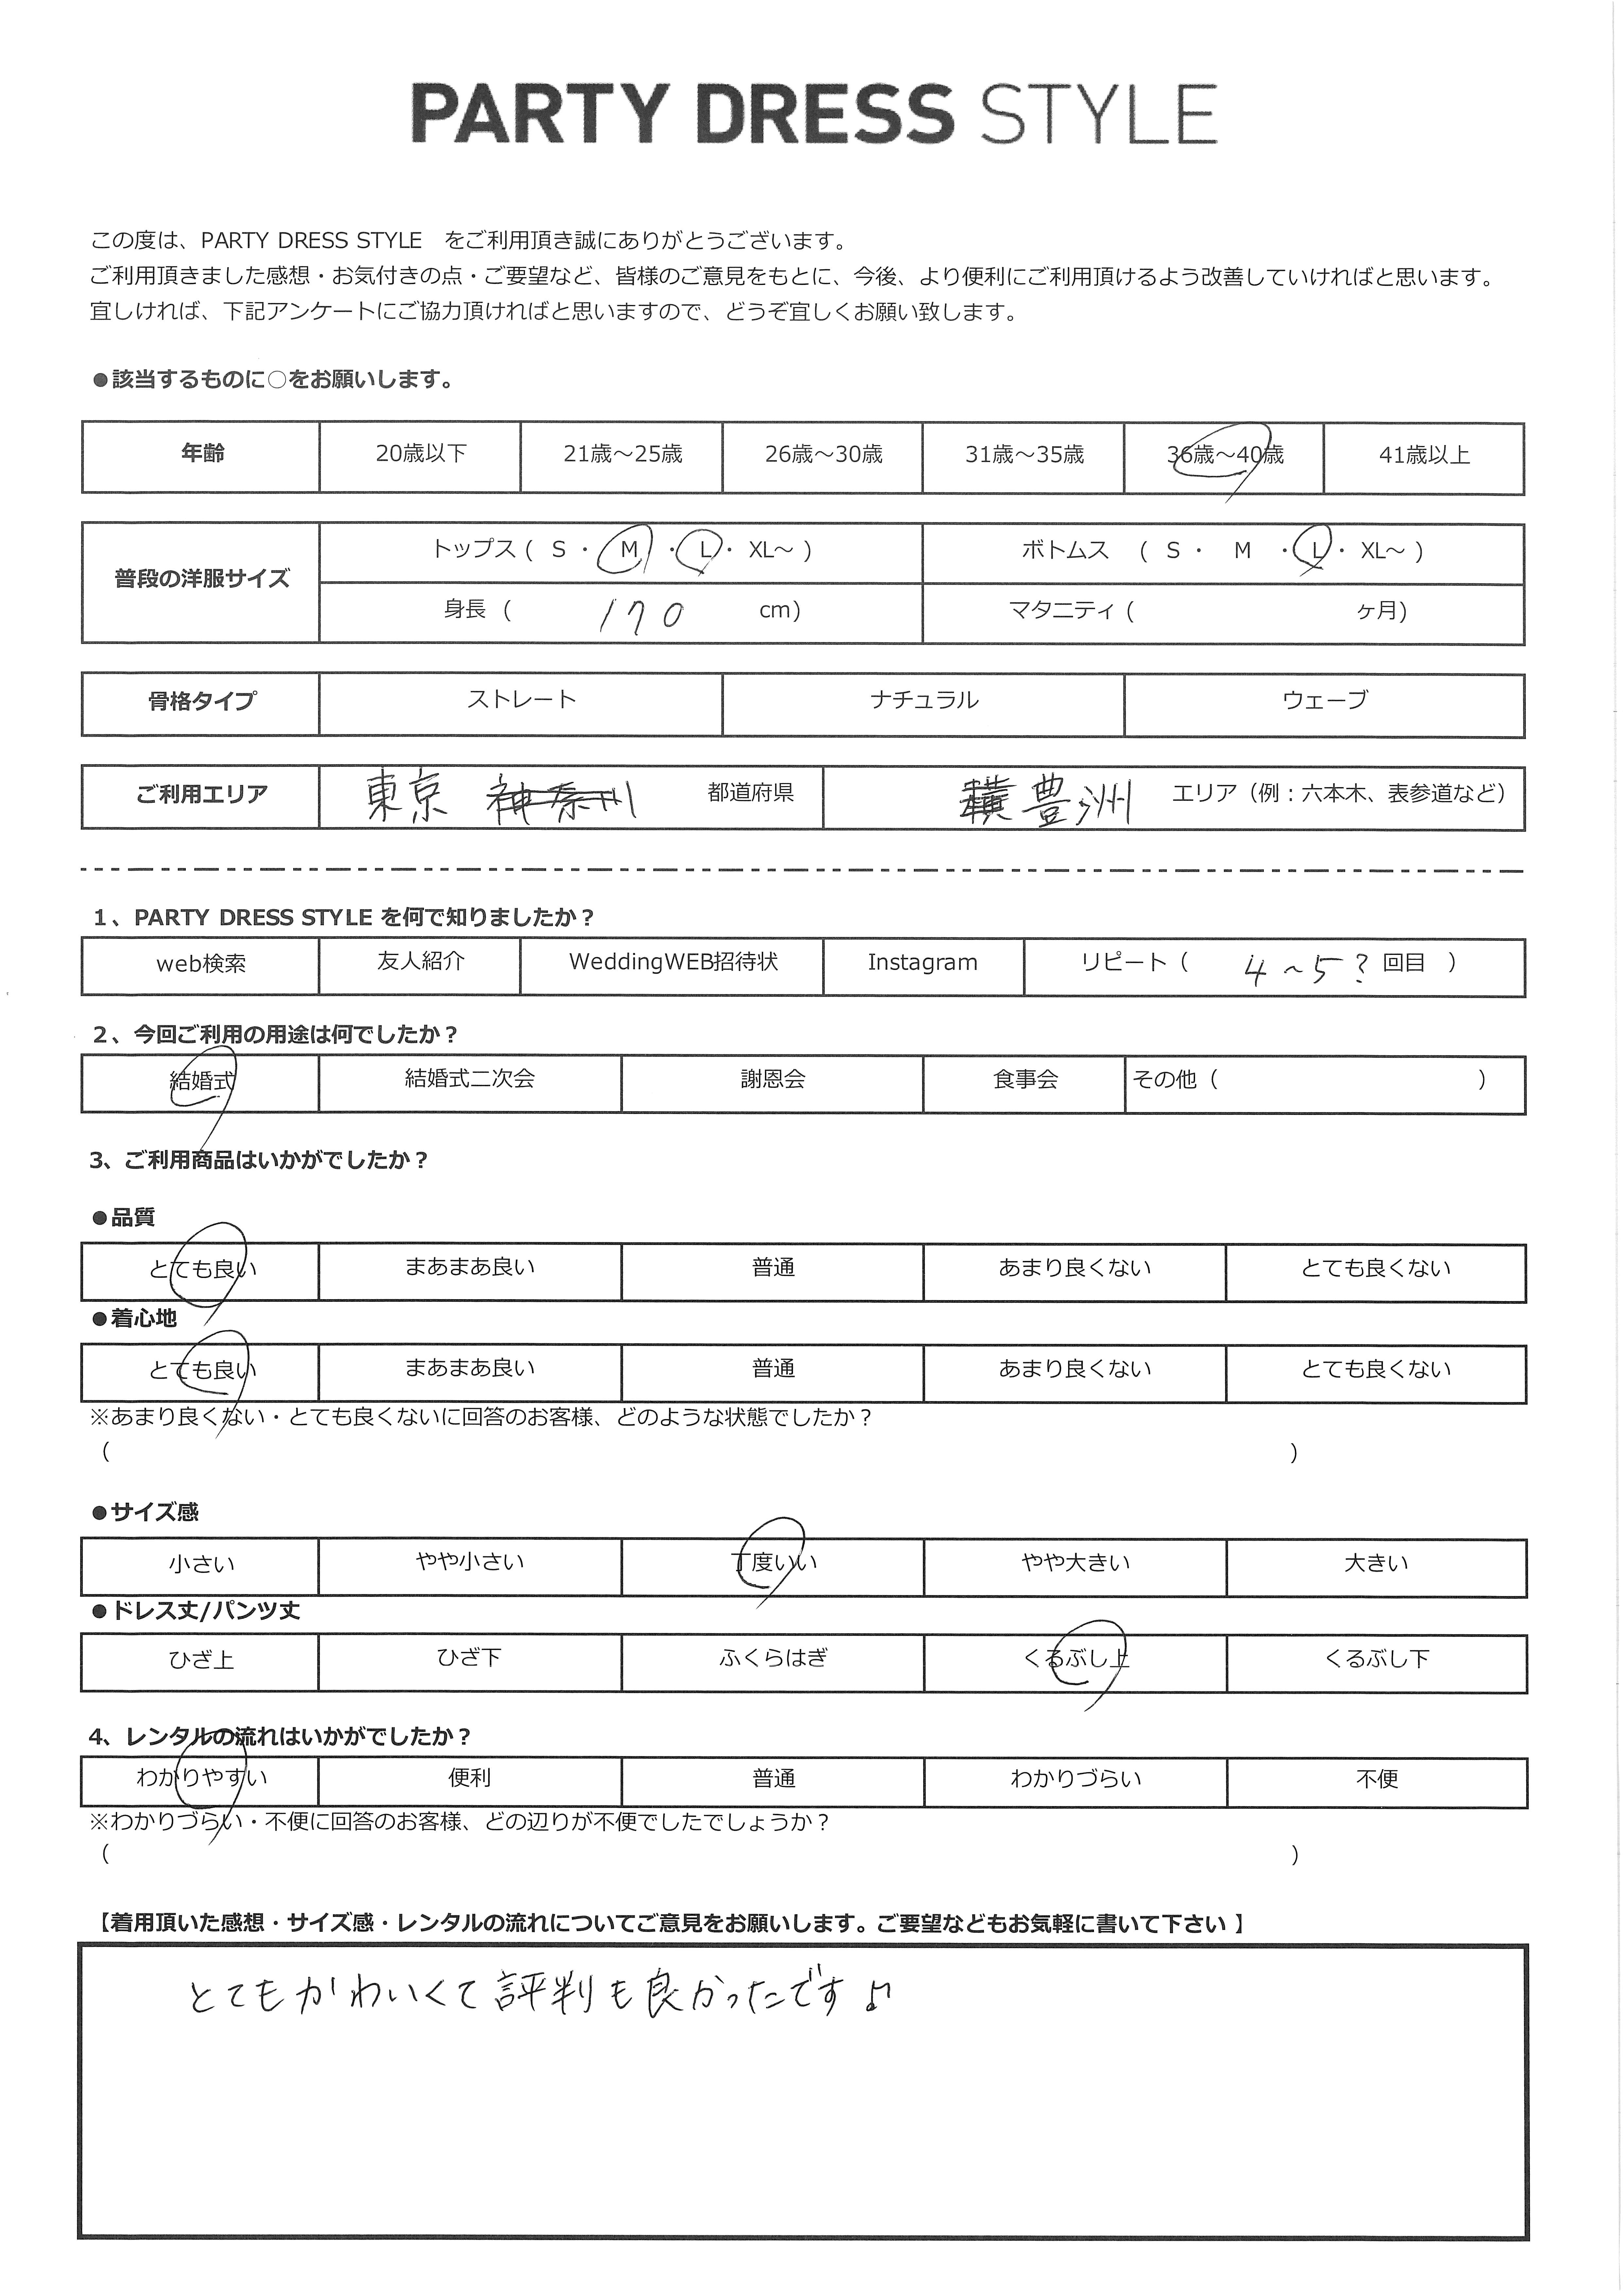 PARTY DRESS STYLE
この度は、PARTY DRESS STYLE　をご利用頂き誠にありがとうございます。
ご利用頂きました感想・お気付きの点・ご要望など、皆様のご意見をもとに、今後、より便利にご利用頂けるよう改善していければと思います。
宜しければ、下記アンケートにご協力頂ければと思いますので、どうぞ宜しくお願い致します。
●該当するものに○をお願いします。
年齢 20歳以下 21歳～25歳 26歳～30歳 31歳～35歳 36歳～40歳 41歳以上
普段の洋服サイズ トップス ( S ・ M ・ L ・ XL～ ) ボトムス ( S ・ M ・ L ・ XL～ )
身長 ( 170 cm) マタニティ ( ヶ月)
骨格タイプ ストレート ナチュラル ウェーブ
ご利用エリア 東京 神奈川 都道府県 横 豊洲 エリア（例：六本木、表参道など）
1、PARTY DRESS STYLE を何で知りましたか？
web検索 友人紹介 WeddingWEB招待状 Instagram リピート（ 4～5? 回目 ）
2、今回ご利用の用途は何でしたか？
結婚式 結婚式二次会 謝恩会 食事会 その他（ ）
3、ご利用商品はいかがでしたか？
●品質
とても良い まあまあ良い 普通 あまり良くない とても良くない
●着心地
とても良い まあまあ良い 普通 あまり良くない とても良くない
※あまり良くない・とても良くないに回答のお客様、どのような状態でしたか？
（ ）
●サイズ感
小さい やや小さい 丁度いい やや大きい 大きい
●ドレス丈/パンツ丈
ひざ上 ひざ下 ふくらはぎ くるぶし上 くるぶし下
4、レンタルの流れはいかがでしたか？
わかりやすい 便利 普通 わかりづらい 不便
※わかりづらい・不便に回答のお客様、どの辺りが不便でしたでしょうか？
（ ）
【着用頂いた感想・サイズ感・レンタルの流れについてご意見をお願いします。ご要望などもお気軽に書いて下さい 】
とてもかわいくて評判も良かったです♪